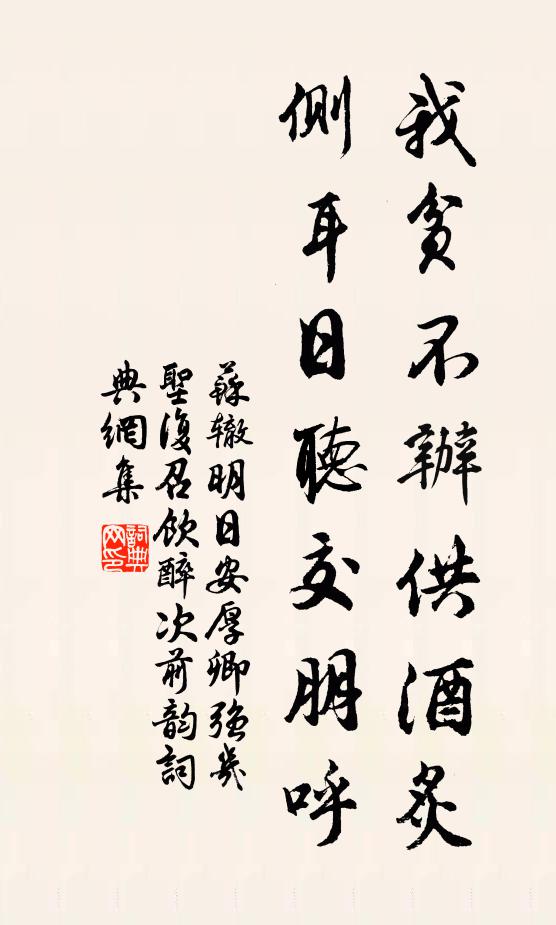 我貧不辦供酒炙
側耳日聽交朋呼
蘇轍明日安厚卿強幾
聖復召飲醉次前韵詞
典網集
詞典
网印